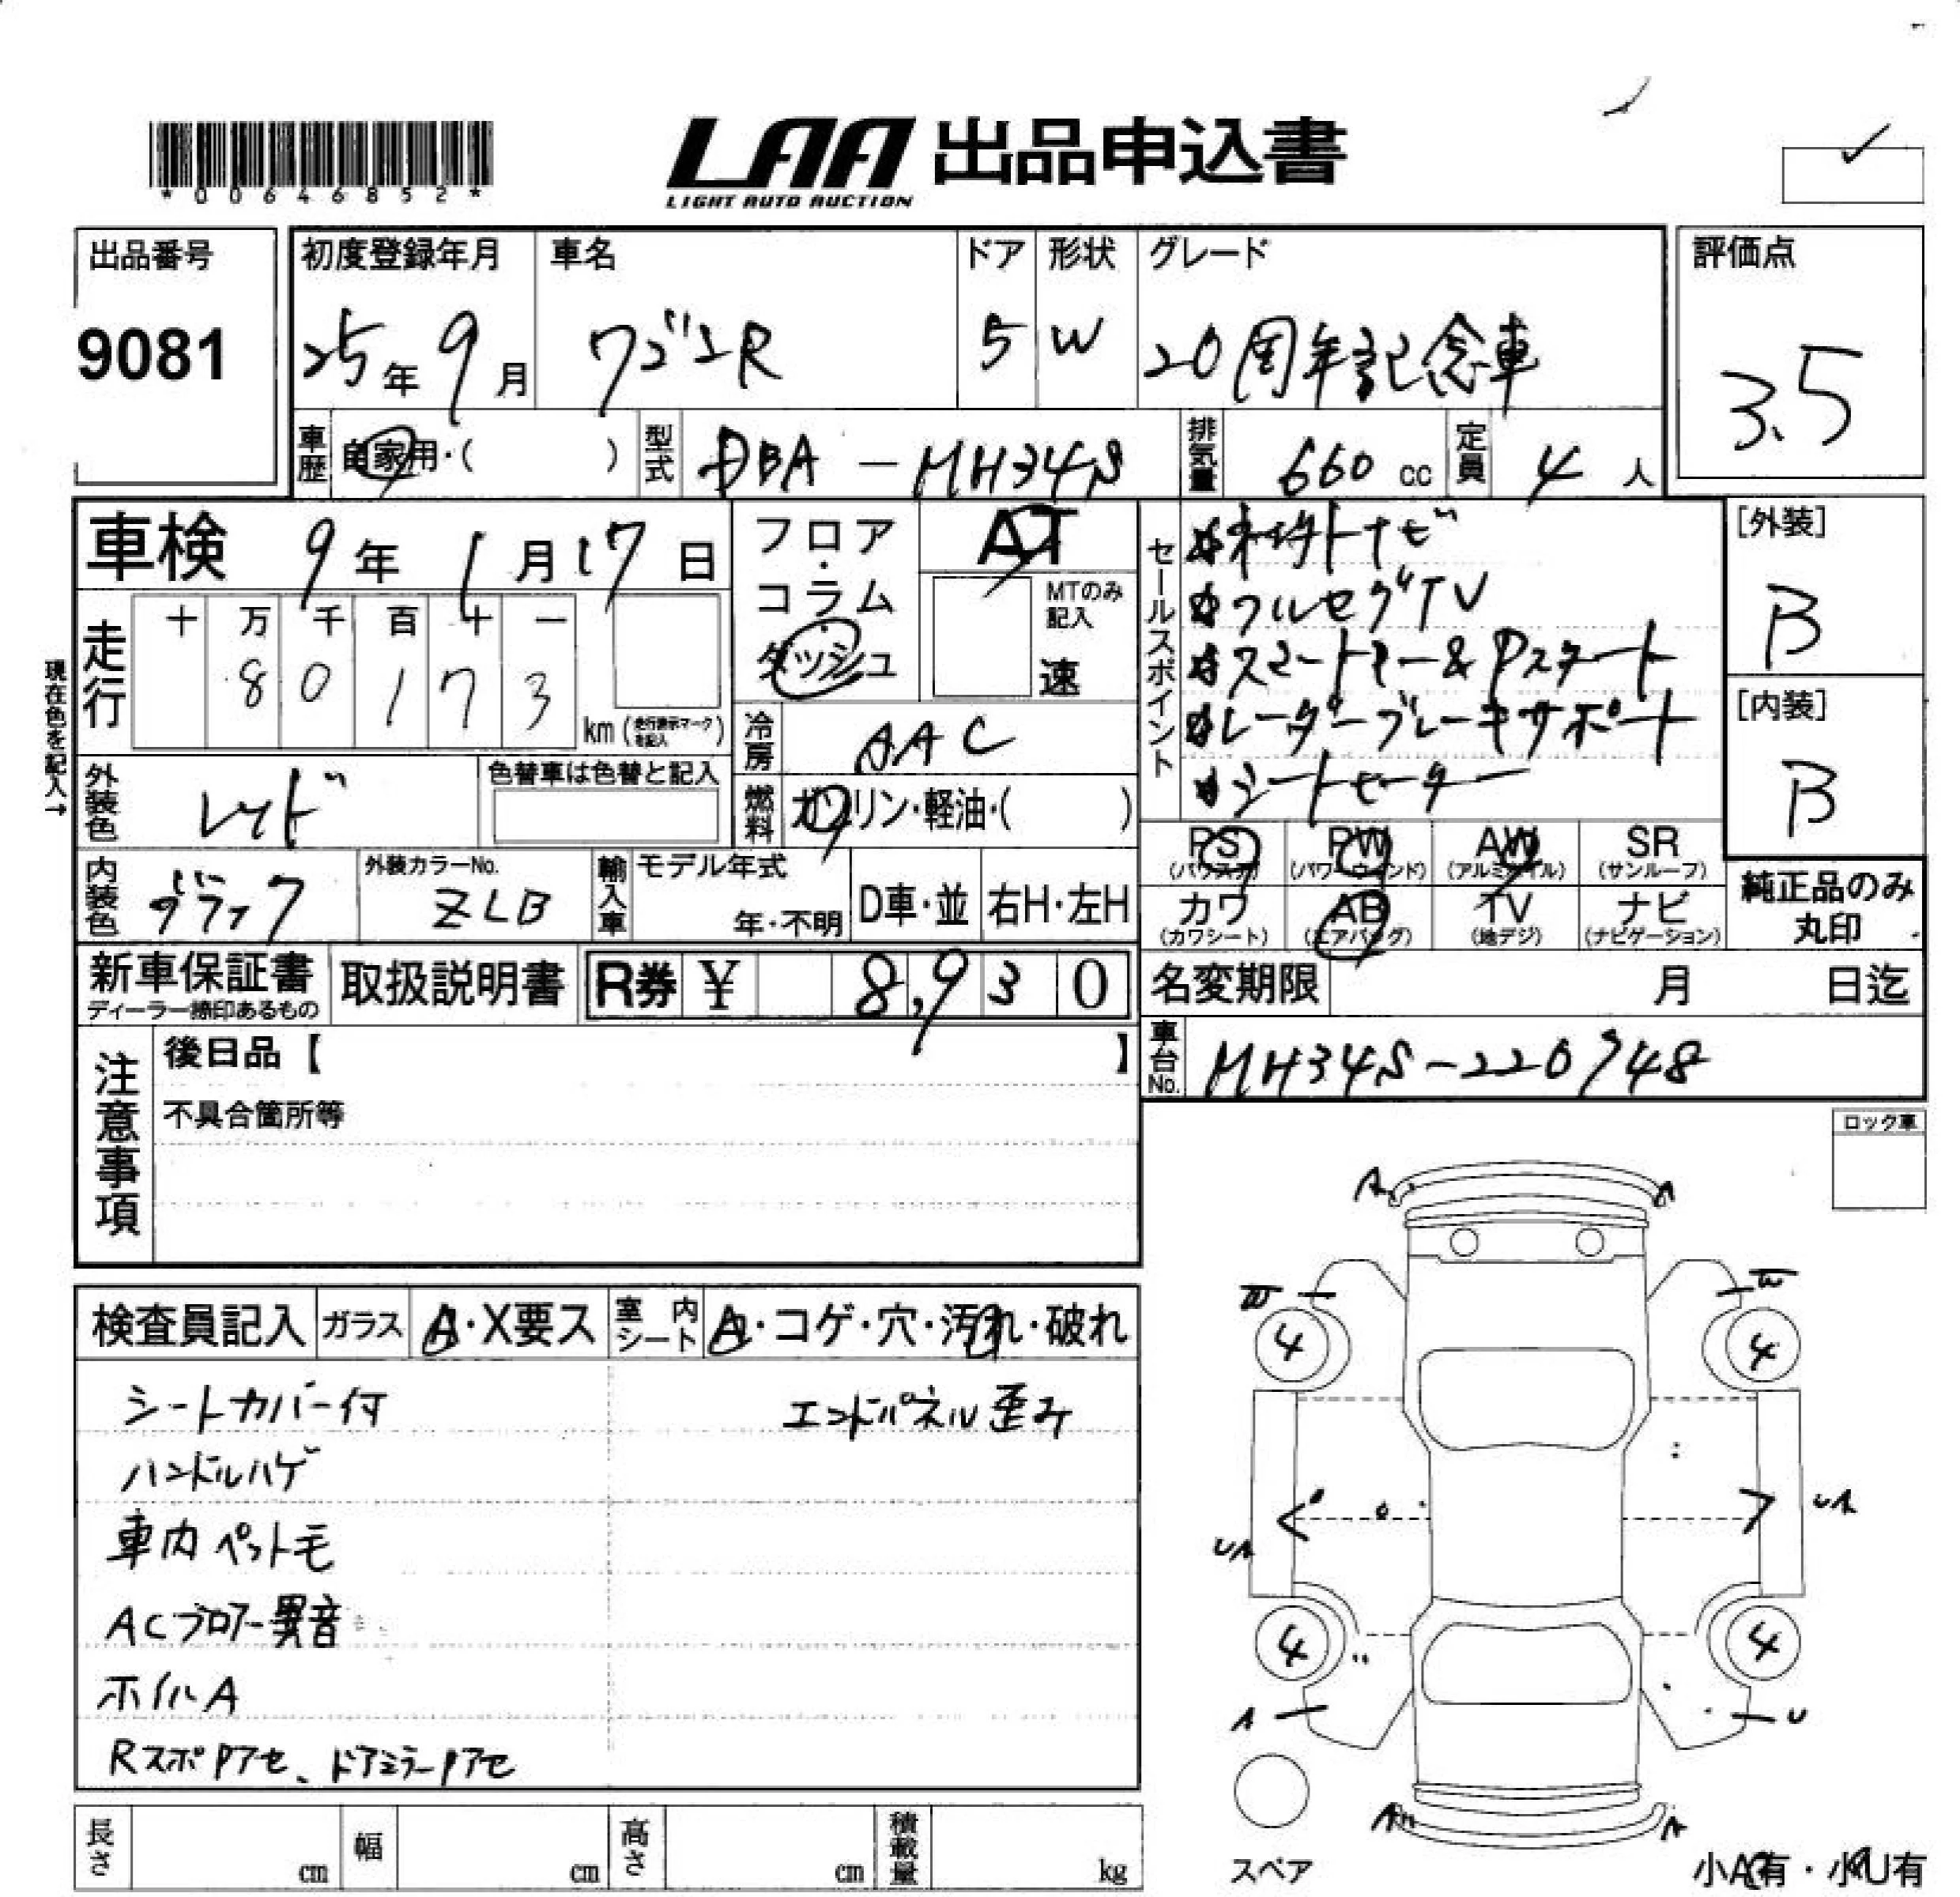 *00646852*
LAA 出品申込書
LIGHT AUTO AUCTION
出品番号
9081
初度登録年月
25年 9月
車名
ワゴンR
ドア
5
形状
W
グレード
20周年記念車
評価点
3.5
車歴 自家用・( )
型式 DBA-MH34S
排気量 660 cc
定員 4 人
車検 9年 1月17日
フロア・コラム・ダッシュ
AT
MTのみ記入
速
セールスポイント
☆ネイサトナビ
☆フルセグTV
☆スマートキー&Pスタート
☆レーダーブレーキサポート
☆シートヒーター
[外装]
B
[内装]
B
現在色を記入→
走行
十 万 千 百 十 一
8 0 1 7 3
km (走行表示マークを記入)
冷房 AAC
外装色 レッド
色替車は色替と記入
燃料 ガソリン・軽油・( )
PS (パワステ)
PW (パワーウィンド)
AW (アルミホイル)
SR (サンルーフ)
カワ (カワシート)
AB (エアバッグ)
TV (地デジ)
ナビ (ナビゲーション)
純正品のみ丸印
内装色 ブラック
外装カラーNo.
ZLB
輸入車
モデル年式
年・不明
D車・並
右H・左H
新車保証書
ディーラー捺印あるもの
取扱説明書
R券 ¥ 8,930
名変期限 月 日迄
車台No. MH34S-220748
注意事項
後日品【 】
不具合箇所等
ロック車
検査員記入
ガラス A・X要ス
室内シート A・コゲ・穴・汚れ・破れ
シートカバー付
エンドパネル歪み
ハンドルハゲ
車内ペット毛
ACブロアー異音
ホイルA
RスポPアセ、ドアミラーPアセ
A
A
W
4
4
UA
UA
4
4
A
U
A
スペア
小A有・小U有
長さ cm
幅 cm
高さ cm
積載量 kg